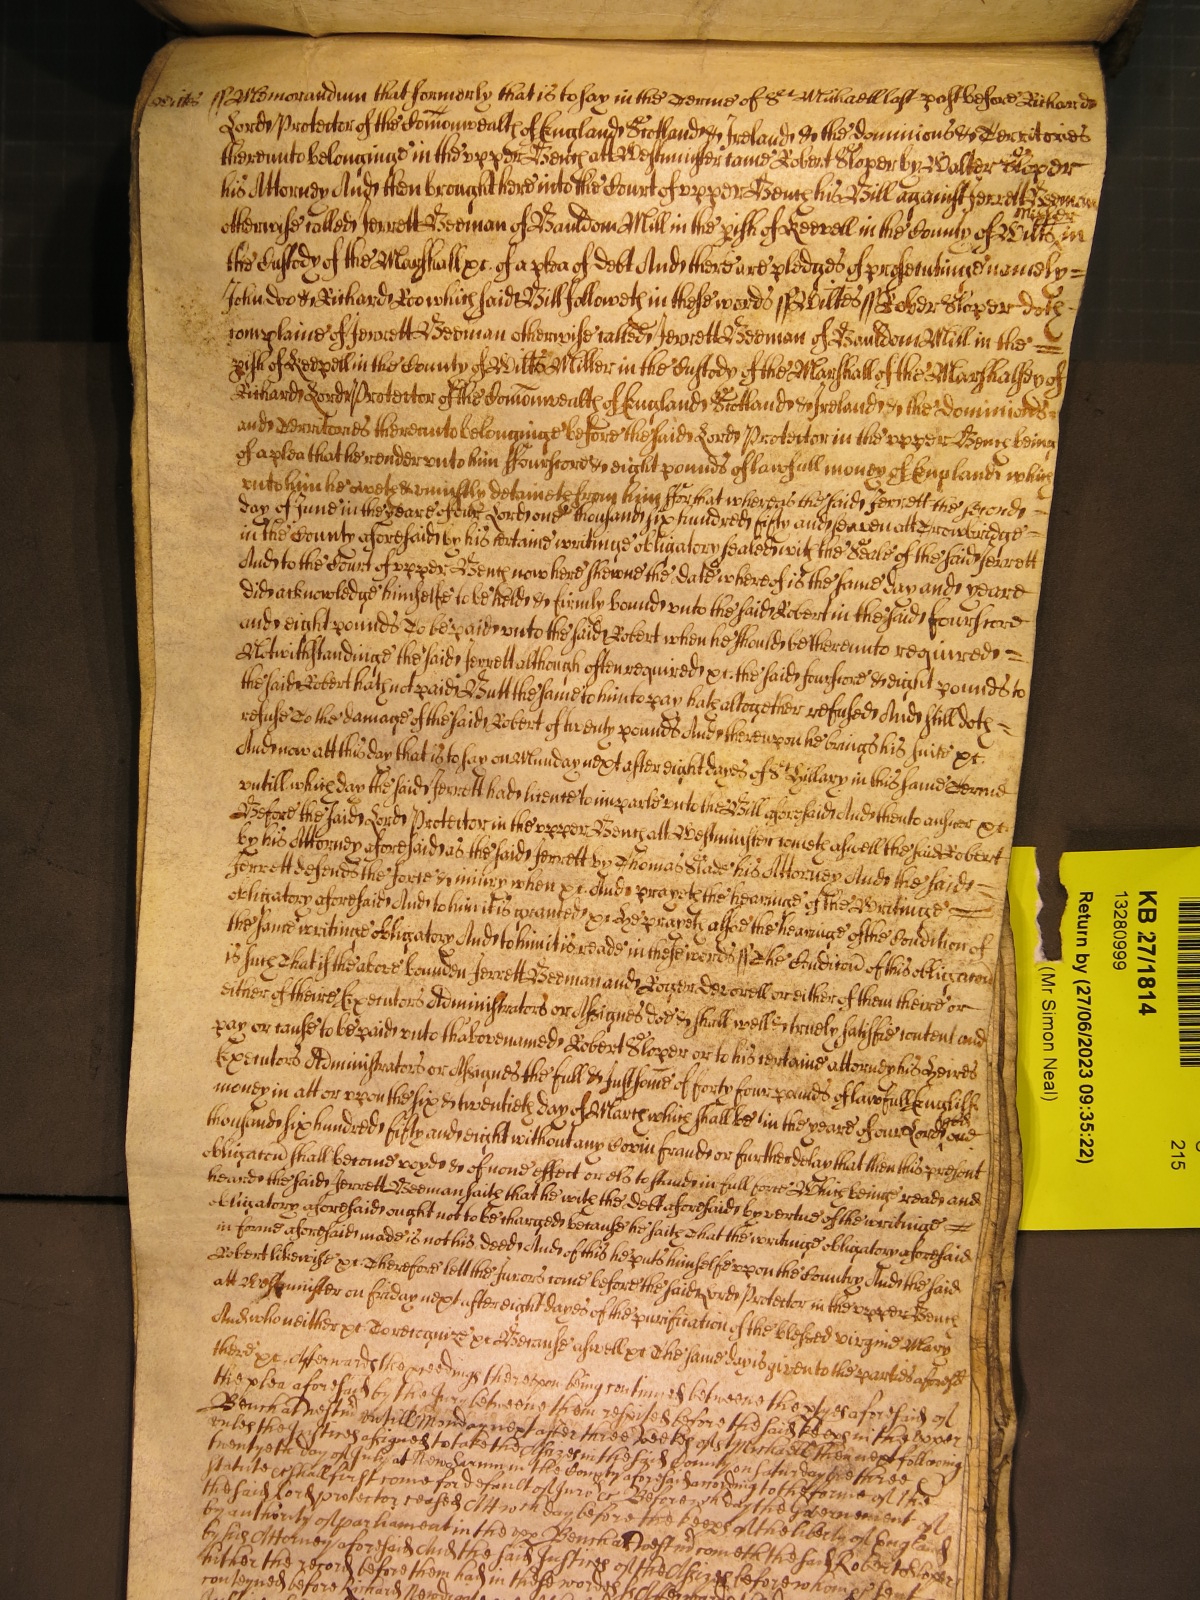 Wiltes ss Memorandum that formerly that is to say in the Terme of St Michaell last past before Richard
Lord Protector of the Comonwealth of England Scotland & Ireland & the dominions & Territories
thereunto belonginge in the vpper Bench att Westminster came Robert Sloper by Walter Sloper
his Attorney And then brought here into the Court of vpper Bench his Bill against Jerrett Beeman
otherwise called Jerrett Beeman of Bauldom Mill in the pish of Keevell in the County of Wilts Miller in
the Custody of the Marshall &c. of a plea of debt And there are pledges of prosecutinge namely =
John doo & Richard Roo which said Bill followeth in these words ss Wiltes ss Rober Sloper doth
complaine of Jerrett Beeman otherwise called Jerrett Beeman of Bauldom Mill in the =
pish of Keevell in the County of Wilts Miller in the Custody of the Marshall of the Marshalsey of
Richard Lord Protector of the Comonwealth of England Scotland & Ireland & the Dominions
and Territories thereunto belonginge before the said Lord Protector in the vpper Bench being
of a plea that he render vnto him ffourscore & eight pounds of lawfull money of England which
vnto him he oweth & uniustly deteineth from him ffor that whereas the said Jerrett the second =
day of June in the yeare of our Lord one thousand six hundred fifty and seaven att Trowbridge =
in the County aforesaid by his certaine writinge obligatory sealed with the Seale of the said Jerrett
And to the Court of vpper Bench now here shewne the date whereof is the same day and yeare
did acknowledge himselfe to be held & firmly bound vnto the said Robert in the said fourscore
and eight pounds To be paid vnto the said Robert when he should be thereunto required =
Notwithstandinge the said Jerrett although often required &c. the said fourscore & eight pounds to
the said Robert hath not paid Butt the same to him to pay hath altogether refused And still doth =
refuse To the damage of the said Robert of twenty pounds And thereupon he brings his suite &c.
And now att this day that is to say on Munday next after eight dayes of St Hillary in this same Terme
vntill which day the said Jerrett had licence to imparle vnto the Bill aforesaid And then to answer &c.
Before the said Lord Protector in the vpper Bench att Westminster cometh aswell the said Robert
by his Attorney aforesaid as the said Jerrett by Thomas Slade his Attorney And the said =
Jerrett defends the force & iniury when &c. And prayeth the hearinge of the Writinge =
obligatory aforesaid And to him it is granted &c. He prayeth alsoe the hearinge of the Condition of
the same writinge obligatory And to him it is reade in these words ss The Condicion of this obligacon
is such That if the above bounden Jerrett Beeman and Roger Deverell or either of them theire or
either of theire Executors Administrators or Assignes doe & shall well & truely satisfie content and
pay or cause to be paid vnto thabovenamed Robert Sloper or to his certaine attorney his Heires
Executors Administrators or Assignes the full & iust some of forty four pounds of lawfull English
money in att or vpon the six & twentieth day of March which shall be in the yeare of our Lord god one
thousand six hundred fifty and eight without any Covin fraud or further delay that then this present
obligacon shall become voyd & of none effect or els to stand in full force Which beinge read and
heard the said Jerrett Beeman saith that he with the Debt aforesaid by vertue of the writinge =
obligatory aforesaid ought not to be charged because he saith That the writinge obligatory aforesaid
in forme aforesaid made is not his deed And of this he puts himselfe vpon the Country And the said
Robert likewise &c. Therefore lett the Jurors come before the said Lord Protector in the vpper Bench
att Westminster on friday next after eight dayes of the purification of the blessed virgine Mary
And who neither &c. To recognize &c. Because aswell &c. The same day is given to the parties aforesd
there &c. Afterwards the pceedings therevpon being continued betweene the ptyes aforesaid of
the plea aforesaid by the Jury betweene them respited before the said keepers in the vpper
Bench at Westmr vntill Monday next after three weekes of St Michaell then next following
vnles the Justices assigned to take the Assizes in the said County on saturday the three
twentieth day of July at New Sarum in the County aforesaid according to the forme of the
statute &c shall first come for default of Juro &c Before wch day the Government of
the said Lord protector ceased Att wch day before the keeps of the liberty of England
by authority of parliament in the vpp Bench at Westmr cometh the said Robert Sloper
by his Attorney aforesaid And the said Justices of the Assizes before whom &c sent
hither the record before them had in these words ss Afterwards
conteyned before Richard Newdigate
KB 27/1814
13280999
Return by (27/06/2023 09:35:22)
(Mr Simon Neal)
215